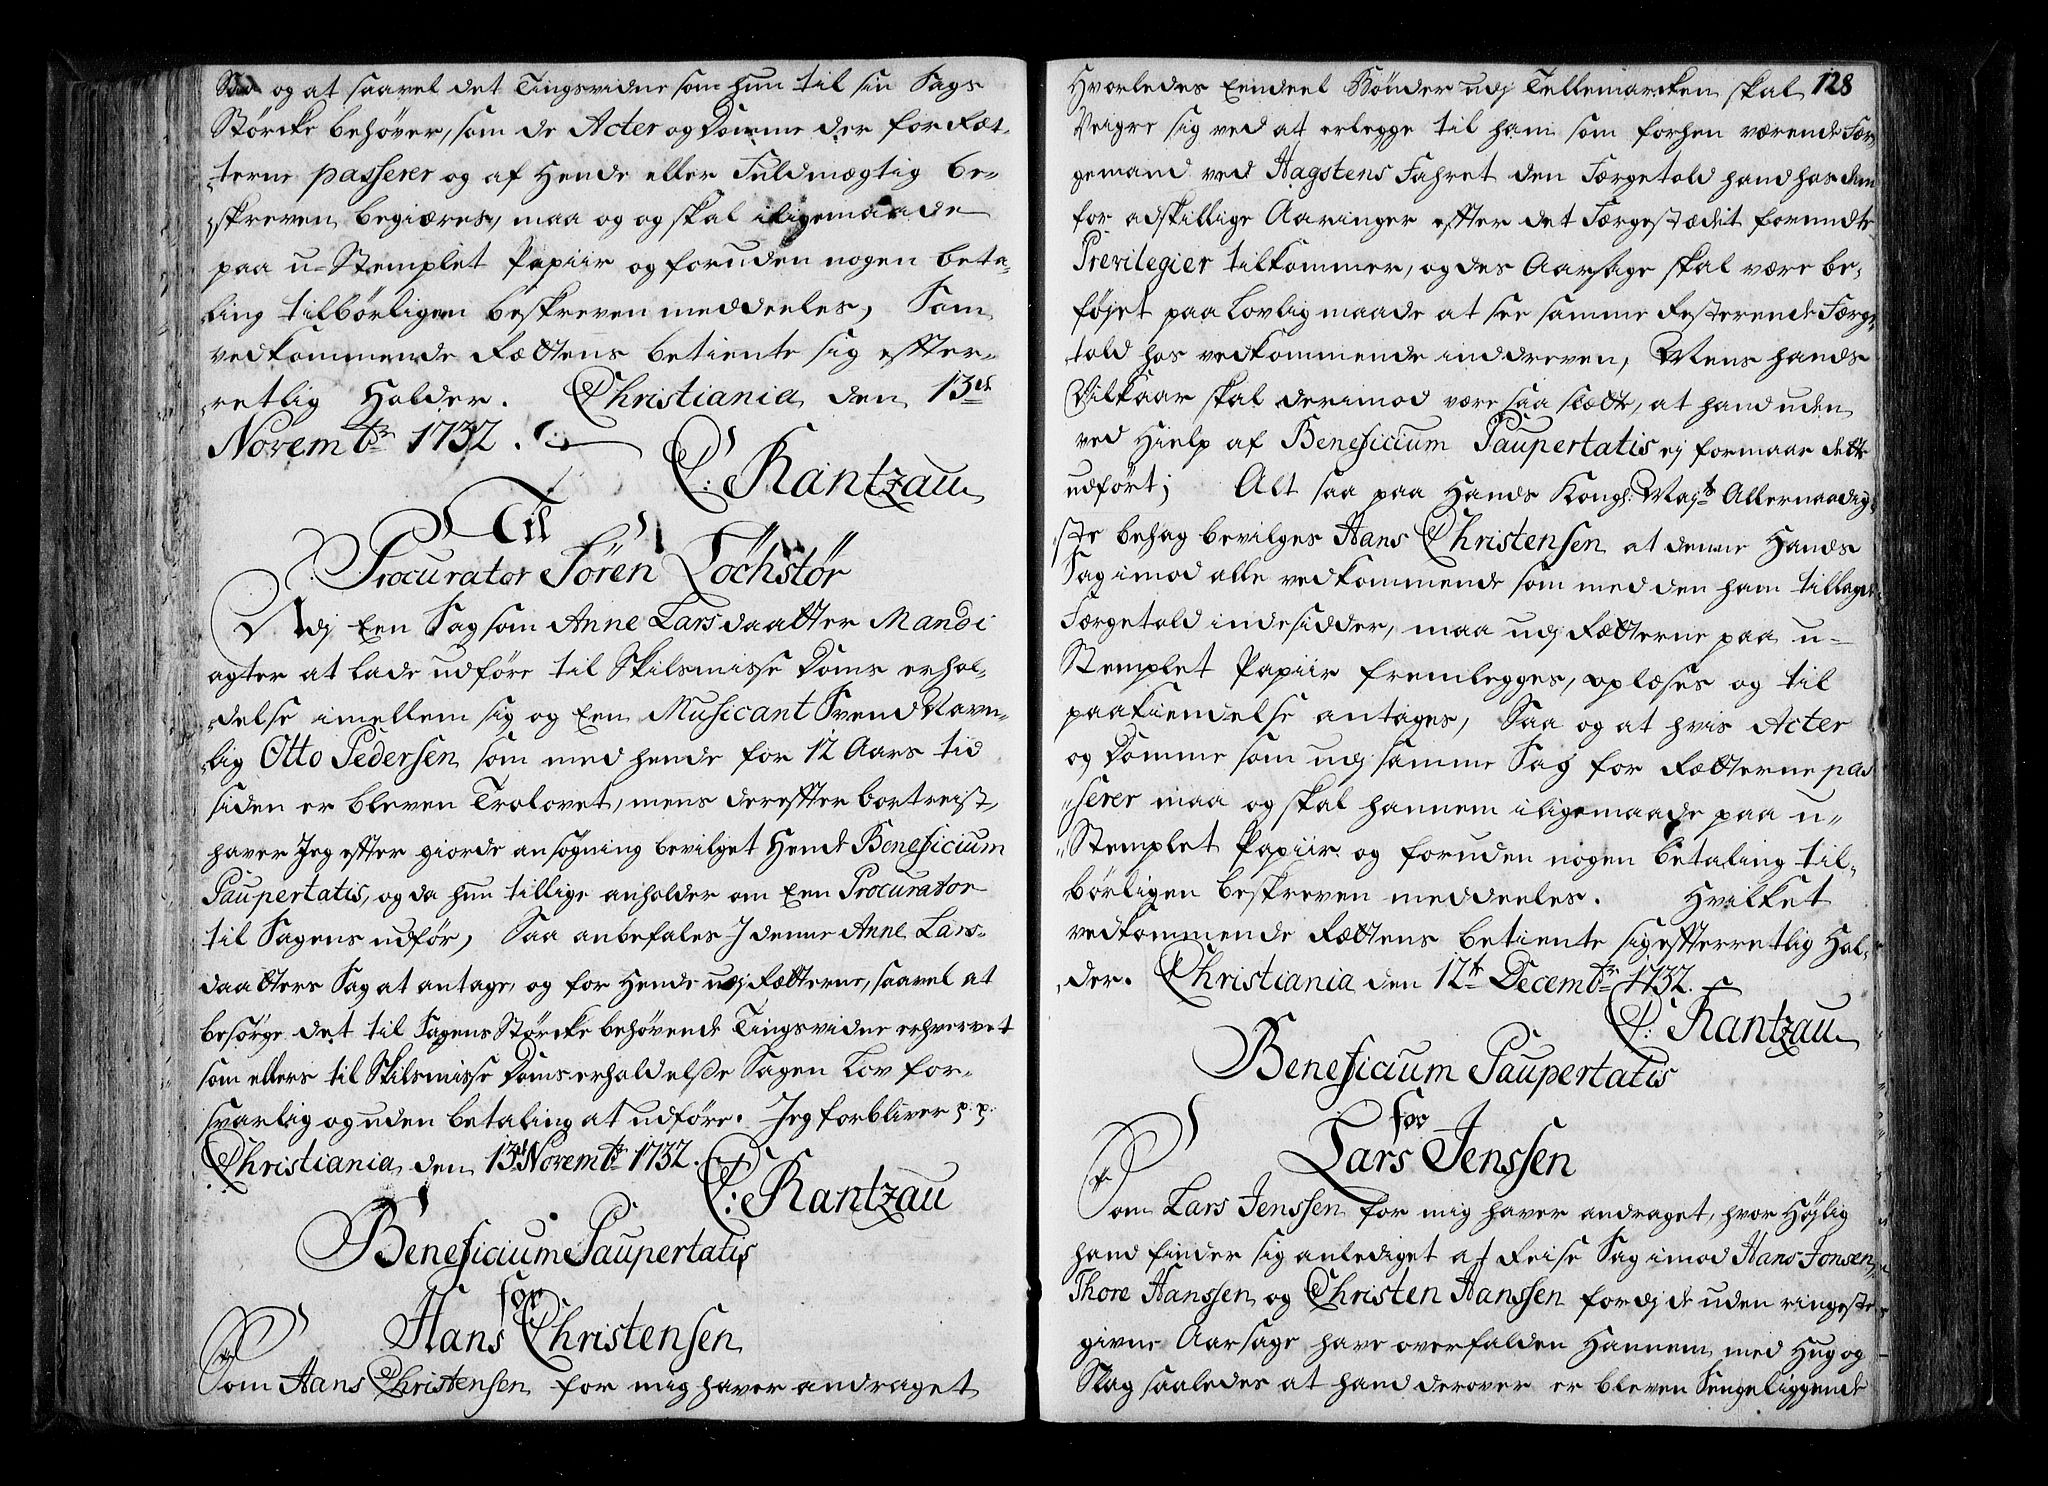 Saa og at saavel det Tingsvidne som hun til sin Sags
Störcke behöver, som de Acter og Domme der for Ræt-
terne passerer og af Hende eller Fuldmægtig be-
skreven begiæres, maa og og skal iligemaade
paa u-Stemplet Papiir og foruden nogen beta-
ling tilbörligen beskreven meddeeles, Som
vedkommende Rættens betiente sig effter-
retlig Holder. Christiania den 13de
Novembr 1732.
C: Rantzau
Til
Procurator Sören Löchstör
Udj Een Sag som Anne Larsdaatter Mandi
agter at lade udföre til Skilsmisse Doms erhol-
delse imellem sig og Een Musicant Svend Navn-
lig Otto Pedersen som med hende for 12 Aars tid
siden er bleven Trolovet, mens dereffter bortreist,
haver Jeg effter giorde ansögning bevilget Hende Beneficium
Paupertatis, og da hun tillige anholder om Een Procurator
til Sagens udför, Saa anbefales J denne Anne Lars-
daatters Sag at antage, og for Hende udj Rætterne, saavel at
besörge det til Sagens Störcke behövende Tingsvidne erhvervet
som ellers til Skilsmisse Doms erholdelse Sagen Lov for-
svarlig og uden betaling at udföre. Jeg forbliver p: p:
Christiania den 13de Novembr 1732.
C: Rantzau
Beneficium Paupertatis
for
Hans Christensen
Som Hans Christensen for mig haver andraget
128
Hvorledes Eendeel Bönder udj Tellemarcken skal
Veigre sig ved at erlegge til ham som forhen værende Fær-
gemand ved Hagstens Fahret den Færgetold hand hos dem
for adskillige Aaringer effter det Færgestædet forundte
Previlegier tilkommer, og des Aarsage skal være be-
föjet paa Lovlig maade at see samme Resterende Færge-
told hos vedkommende inddreven, Mens hands
Vilkaar skal derimod være saa slætte, at hand uden
ved Hielp af Beneficium Paupertatis ej formaar dette
udfört; Alt saa paa Hands Kongl: Majts Allernaadig-
ste behag bevilges Hans Christensen at denne Hands
Sag imod alle vedkommende som med den ham tillagde
Færgetold indesidder, maa udj Rætterne paa u-
Stemplet Papiir fremlegges, oplæses og til
paakiendelse antages, Saa og at hvis Acter
og Domme som udj samme Sag for Rætterne pas-
serer maa og skal hannem iligemaade paa u-
Stemplet Papiir og foruden nogen betaling til-
börligen beskreven meddeeles. Hvilket
vedkommende Rættens betiente sig effterretlig Hol-
der. Christiania den 12te Decembr 1732.
C: Rantzau
Beneficium Paupertatis
for
Lars Jenssen
Som Lars Jenssen for mig haver andraget, hvor Höjlig
hand finder sig anlediget at Reise Sag imod Hans Jonsen,
Thore Hanssen og Christen Hanssen fordj de uden ringeste
givne Aarsage have overfalden Hannem med Hug og
Slag saaledes at hand derover er bleven Sengeliggende